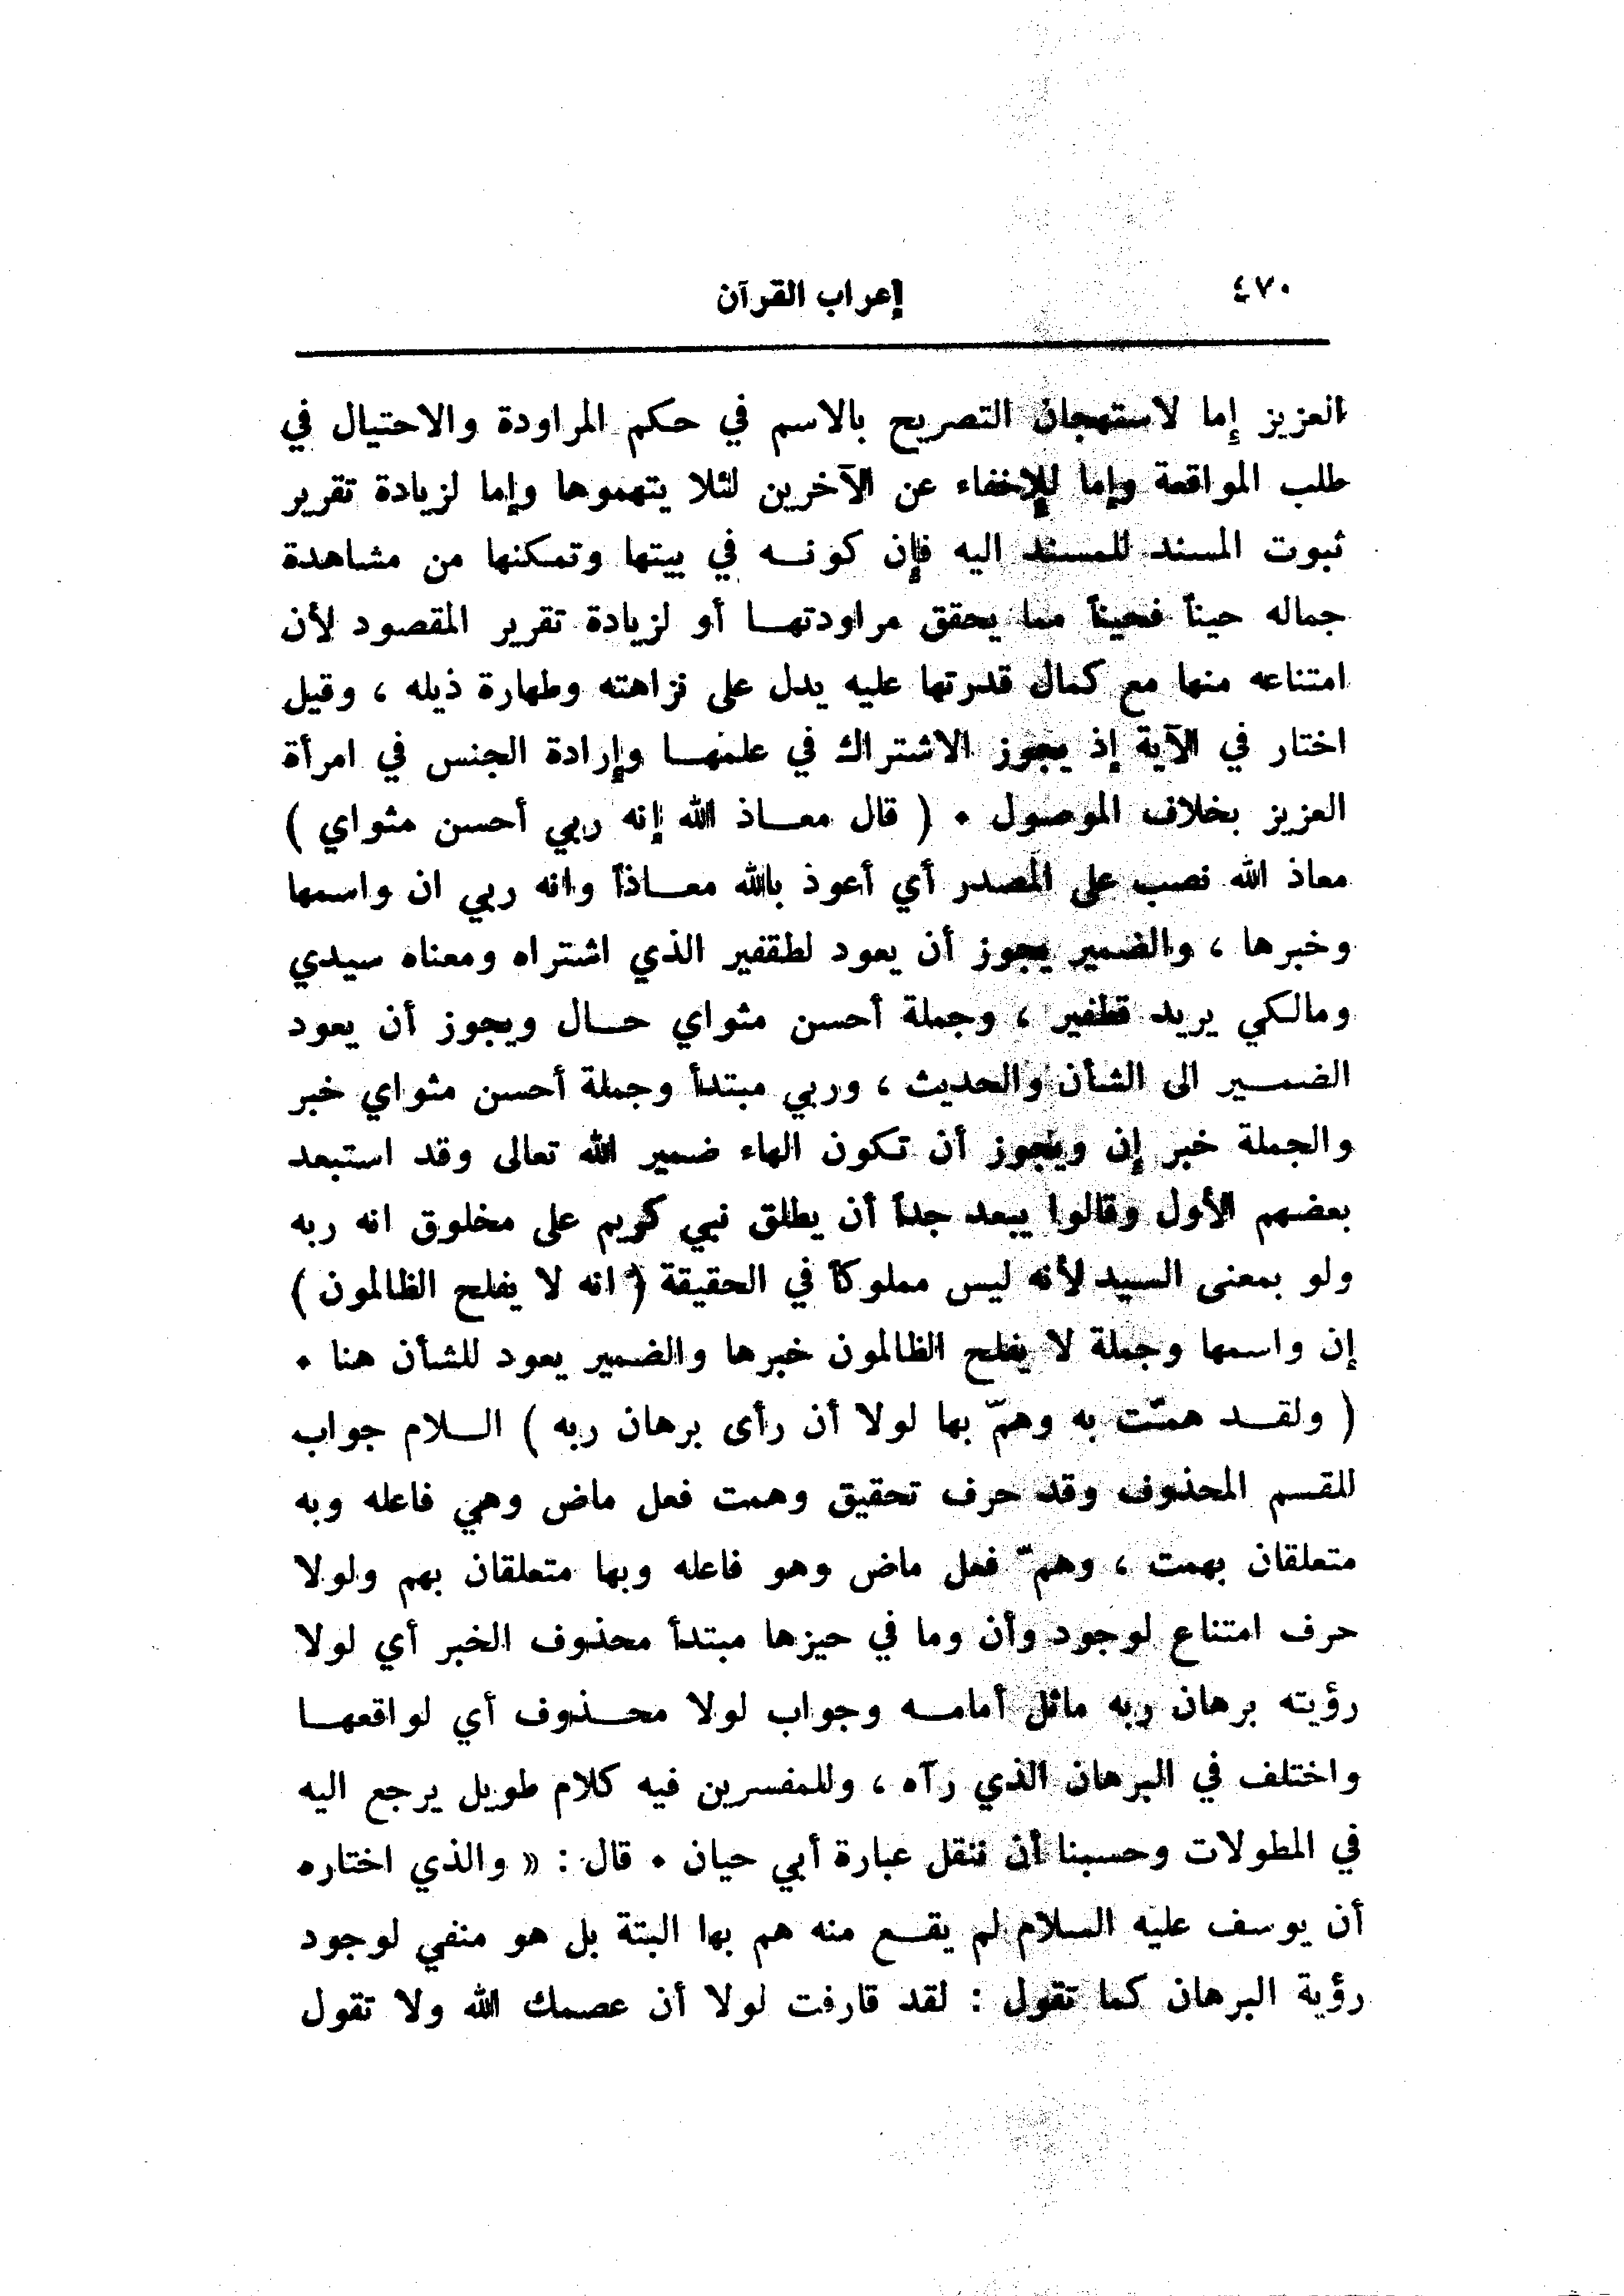 ٤٧٠ إعراب القرآن
العزيز إما لاستهجان التصريح بالاسم في حكم المراودة والاحتيال في
طلب المواقعة وإما للإخفاء عن الآخرين لئلا يتهموها وإما لزيادة تقرير
ثبوت المسند للمسند اليه فإن كونه في بيتها وتمكنها من مشاهدة
جماله حيناً فحيناً مما يحقق مراودتها أو لزيادة تقرير المقصود لأن
امتناعه منها مع كمال قدرتها عليه يدل على نزاهته وطهارة ذيله ، وقيل
اختار في الآية إذ يجوز الاشتراك في علمها وإرادة الجنس في امرأة
العزيز بخلاف الموصول . ( قال معاذ الله إنه ربي أحسن مثواي )
معاذ الله نصب على المصدر أي أعوذ بالله معاذاً وانه ربي ان واسمها
وخبرها ، والضمير يجوز أن يعود لطقفير الذي اشتراه ومعناه سيدي
ومالكي يريد قطفير ، وجملة أحسن مثواي حال ويجوز أن يعود
الضمير الى الشأن والحديث ، وربي مبتدأ وجملة أحسن مثواي خبر
والجملة خبر إن ويجوز أن تكون الهاء ضمير الله تعالى وقد استبعد
بعضهم الأول وقالوا يبعد جداً أن يطلق نبي كريم على مخلوق انه ربه
ولو بمعنى السيد لأنه ليس مملوكاً في الحقيقة ( انه لا يفلح الظالمون )
إن واسمها وجملة لا يفلح الظالمون خبرها والضمير يعود للشأن هنا .
( ولقد همّت به وهمّ بها لولا أن رأى برهان ربه ) السلام جواب
للقسم المحذوف وقد حرف تحقيق وهمت فعل ماض وهي فاعله وبه
متعلقان بهمت ، وهمّ فعل ماض وهو فاعله وبها متعلقان بهم ولولا
حرف امتناع لوجود وأن وما في حيزها مبتدأ محذوف الخبر أي لولا
رؤيته برهان ربه ماثل أمامه وجواب لولا محذوف أي لواقعها
واختلف في البرهان الذي رآه ، وللمفسرين فيه كلام طويل يرجع اليه
في المطولات وحسبنا أن ننقل عبارة أبي حيان . قال : « والذي اختاره
أن يوسف عليه السلام لم يقع منه هم بها البتة بل هو منفي لوجود
رؤية البرهان كما تقول : لقد قارفت لولا أن عصمك الله ولا تقول